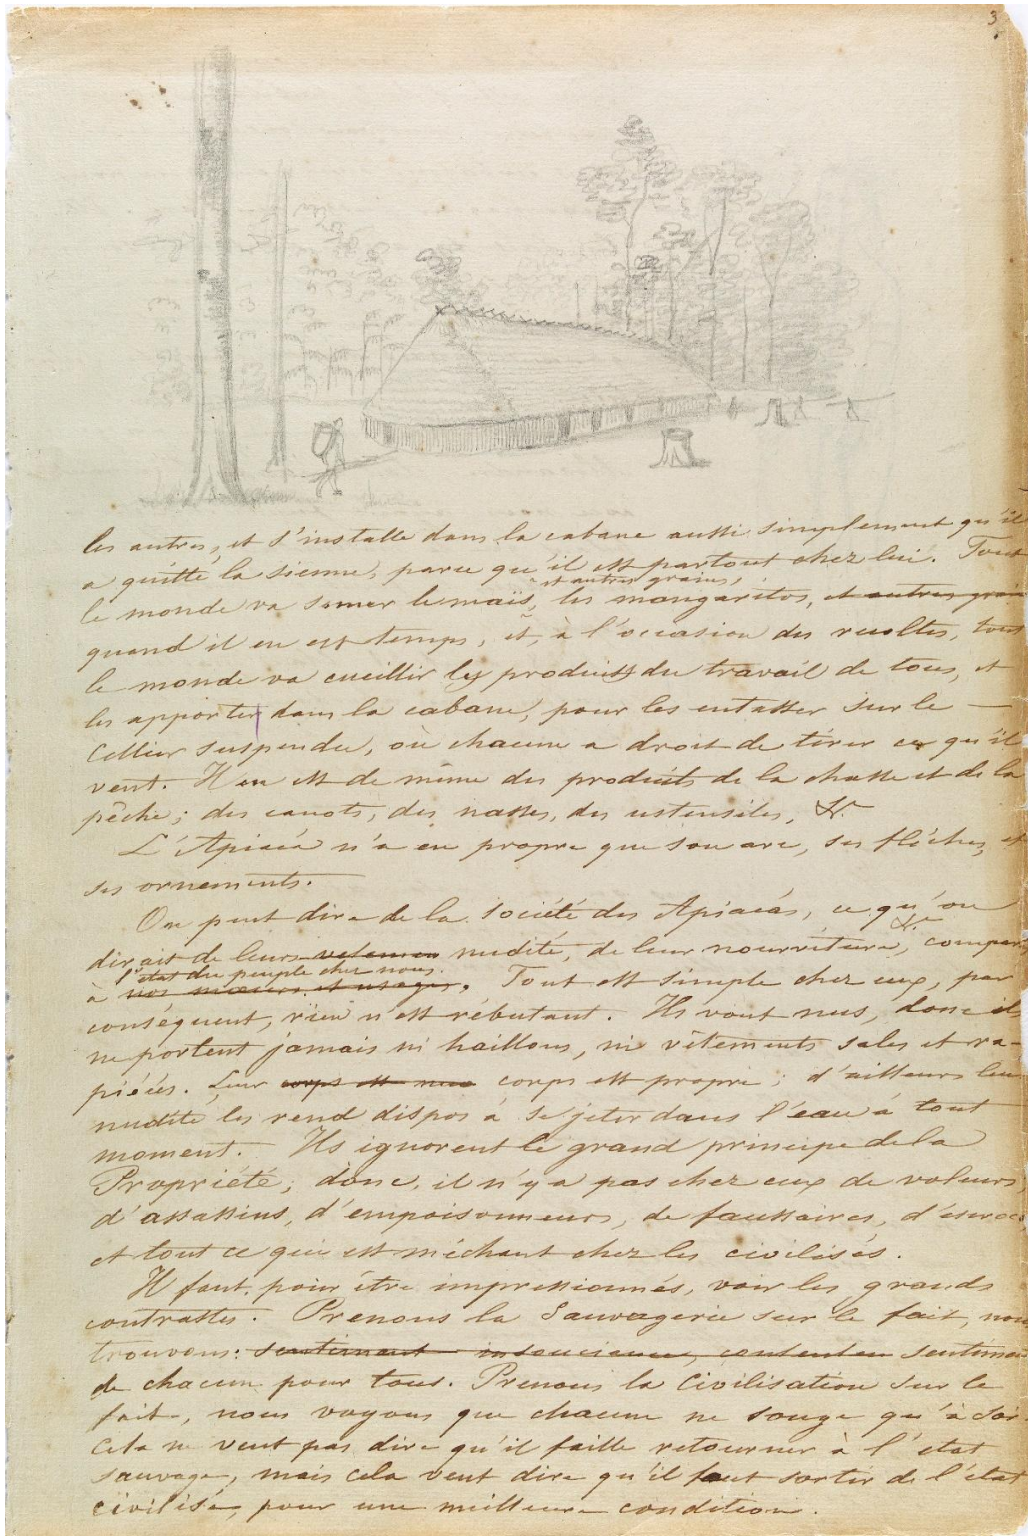 3
les autres, et s'installe dans la cabane aussi simplement qu'il
a quitté la sienne, parce qu'il est partout chez lui. Tout
et autres grains,
le monde va semer le maïs, les mangaritos, et autres grai
quand il en est temps, et, à l'occasion des recoltes, tout
le monde va cueillir les produits du travail de tous, et
les apporter dans la cabane, pour les entasser sur le —
Cellier suspendu, où chacun a droit de tirer ce qu'il
veut. Il en est de même des produits de la chasse et de la
pêche; des canots, des nasses, des ustensiles, &c.
L'Apiacá n'a en propre que son arc, ses flêches, et
ses ornements.
On peut dire de la Société des Apiacás, ce qu'on
dirait de leurs vetemen nudité, de leur nourriture, &c. compar
l'état du peuple chez nous.
à nos mœurs et usages. Tout est simple chez eux, par
conséquent, rien n'est rébutant. Ils vont nus, donc ils
ne portent jamais ni haillons, ni vêtements sales et ra-
piécés. Leur corps est nue corps est propre; d'ailleurs leur
nudité les rend dispos à se jeter dans l'eau à tout
moment. Ils ignorent le grand principe de la
Propriété; donc, il n'y a pas chez eux de voleurs,
d'assassins, d'empoisonneurs, de faussaires, d'escrocs,
et tout ce qui est méchant chez les civilisés.
Il faut, pour être impressionnés, voir les grands
contrastes. Prenons la Sauvagerie sur le fait, nous
trouvons: sentiment insouciance, contenten sentimen
de chacun pour tous. Prenons la Civilisation sur le
fait, nous voyons que chacun ne songe qu'à soi.
Cela ne veut pas dire qu'il faille retourner à l'état
sauvage, mais cela veut dire qu'il faut sortir de l'état
civilisé, pour une meilleure condition.